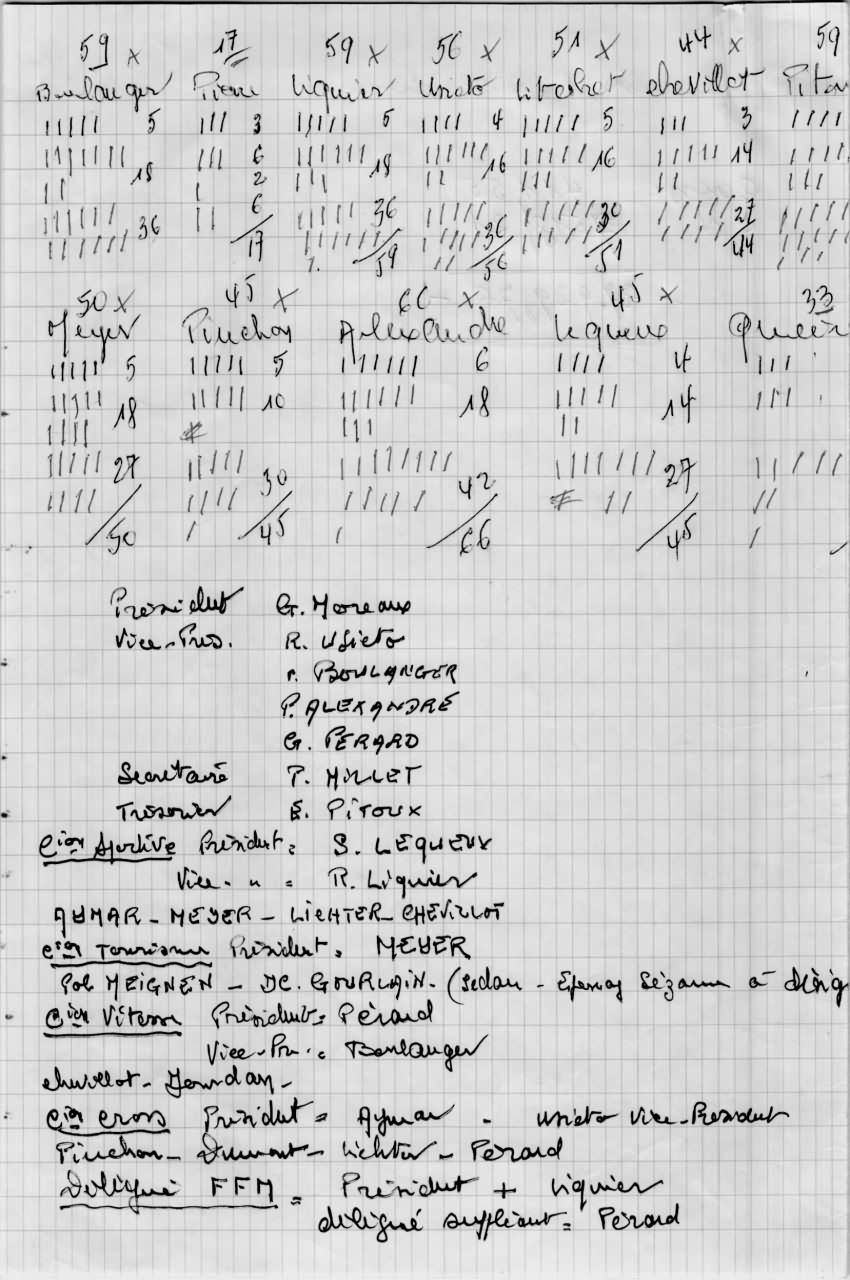 59 x 17 59 x 56 x 51 x 44 x 59
Boulanger Pierre Liquier Usieto chevillot
5 3 5 4 5 3
18 6 18 16 16 14
2
36 6 36 36 30 27
17 59 56 51 44
50 x 45 x 66 x 45 x 33
Meyer Pinchon Alexandre Lequeux
5 5 6 4
18 10 18 14
27 30 42 27
50 45 66 45
Président G. Moreaux
Vice-Prés. R. Usieto
r. BOULANGER
P. ALEXANDRE
G. PERARD
Secrétaire P. MILLET
Trésorier E. PITOUX
Cion Sportive Président = S. LEQUEUX
Vice- " = R. Liquier
AYMAR - MEYER - LICHTER - CHEVILLOT
Cion Tourisme Président = MEYER
Pol MEIGNEN - DC. GOURLAIN. (Sedan - Epernay Sézanne à désig
Cion Vitesse Président = Pérard
Vice-Pr. = Boulanger
chevillot - Jourdan -
Cion Cross Président = Aymar - Usieto Vice-Président
Pinchon - Dumont - Lichter - Pérard
Délégué FFM = Président + Liquier
délégué suppléant = Pérard